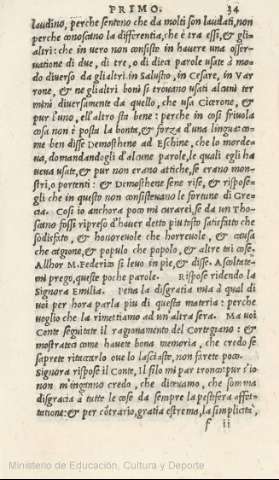 PRIMO. 34
laudino, perche senteno che da molti son laudati, non
perche conoscano la differentia, che è tra essi, & gli
altri: che in vero non consiste in havere una osser-
vatione di due, di tre, o di dieci parole usate à mo-
do diverso da gli altri in Salustio, in Cesare, in Var
rone, & ne gli altri boni si trovano usati alcuni ter
mini diversamente da quello, che usa Cicerone, &
pur l'uno, e l'altro sta bene: perche in cosi frivola
cosa non è posta la bontà, & forza d'una lingua: co-
me ben disse Demosthene ad Eschine, che lo morde-
va, domandandogli d'alcune parole, le quali egli ha
veva usate, & pur non erano attiche, se erano mon-
stri, o portenti: & Demosthene se ne rise, & rispose-
gli che in questo non consistevano le fortune di Gre-
cia. Cosi io anchora poco mi curarei, se da un Tho-
scano fossi ripreso d'haver detto piu tosto satisfatto che
sodisfatto, & honorevole che horrevole, & causa
che cagione, & populo che popolo, & altre tai cose.
Allhor M. Federico si levo in piè, & disse. Ascoltate-
mi prego, queste poche parole. Rispose ridendo la
Signora Emilia. Pena la disgratia mia à qual di
voi per hora parla piu di questa materia: perche
voglio che la rimettiamo ad un'altra sera. Ma voi
Conte seguitate il ragionamento del Cortegiano: &
mostrateci come havete bona memoria, che credo se
saprete ritaccarlo ove lo lasciaste, non farete poco.
Signora rispose il Conte, il filo mi par tronco: pur s'io
non m'inganno credo, che dicevamo, che somma
disgratia à tutte le cose da sempre la pestifera affet-
tatione: & per cõtrario, gratia estrema, la simplicità,
f ii
Ministerio de Educación, Cultura y Deporte